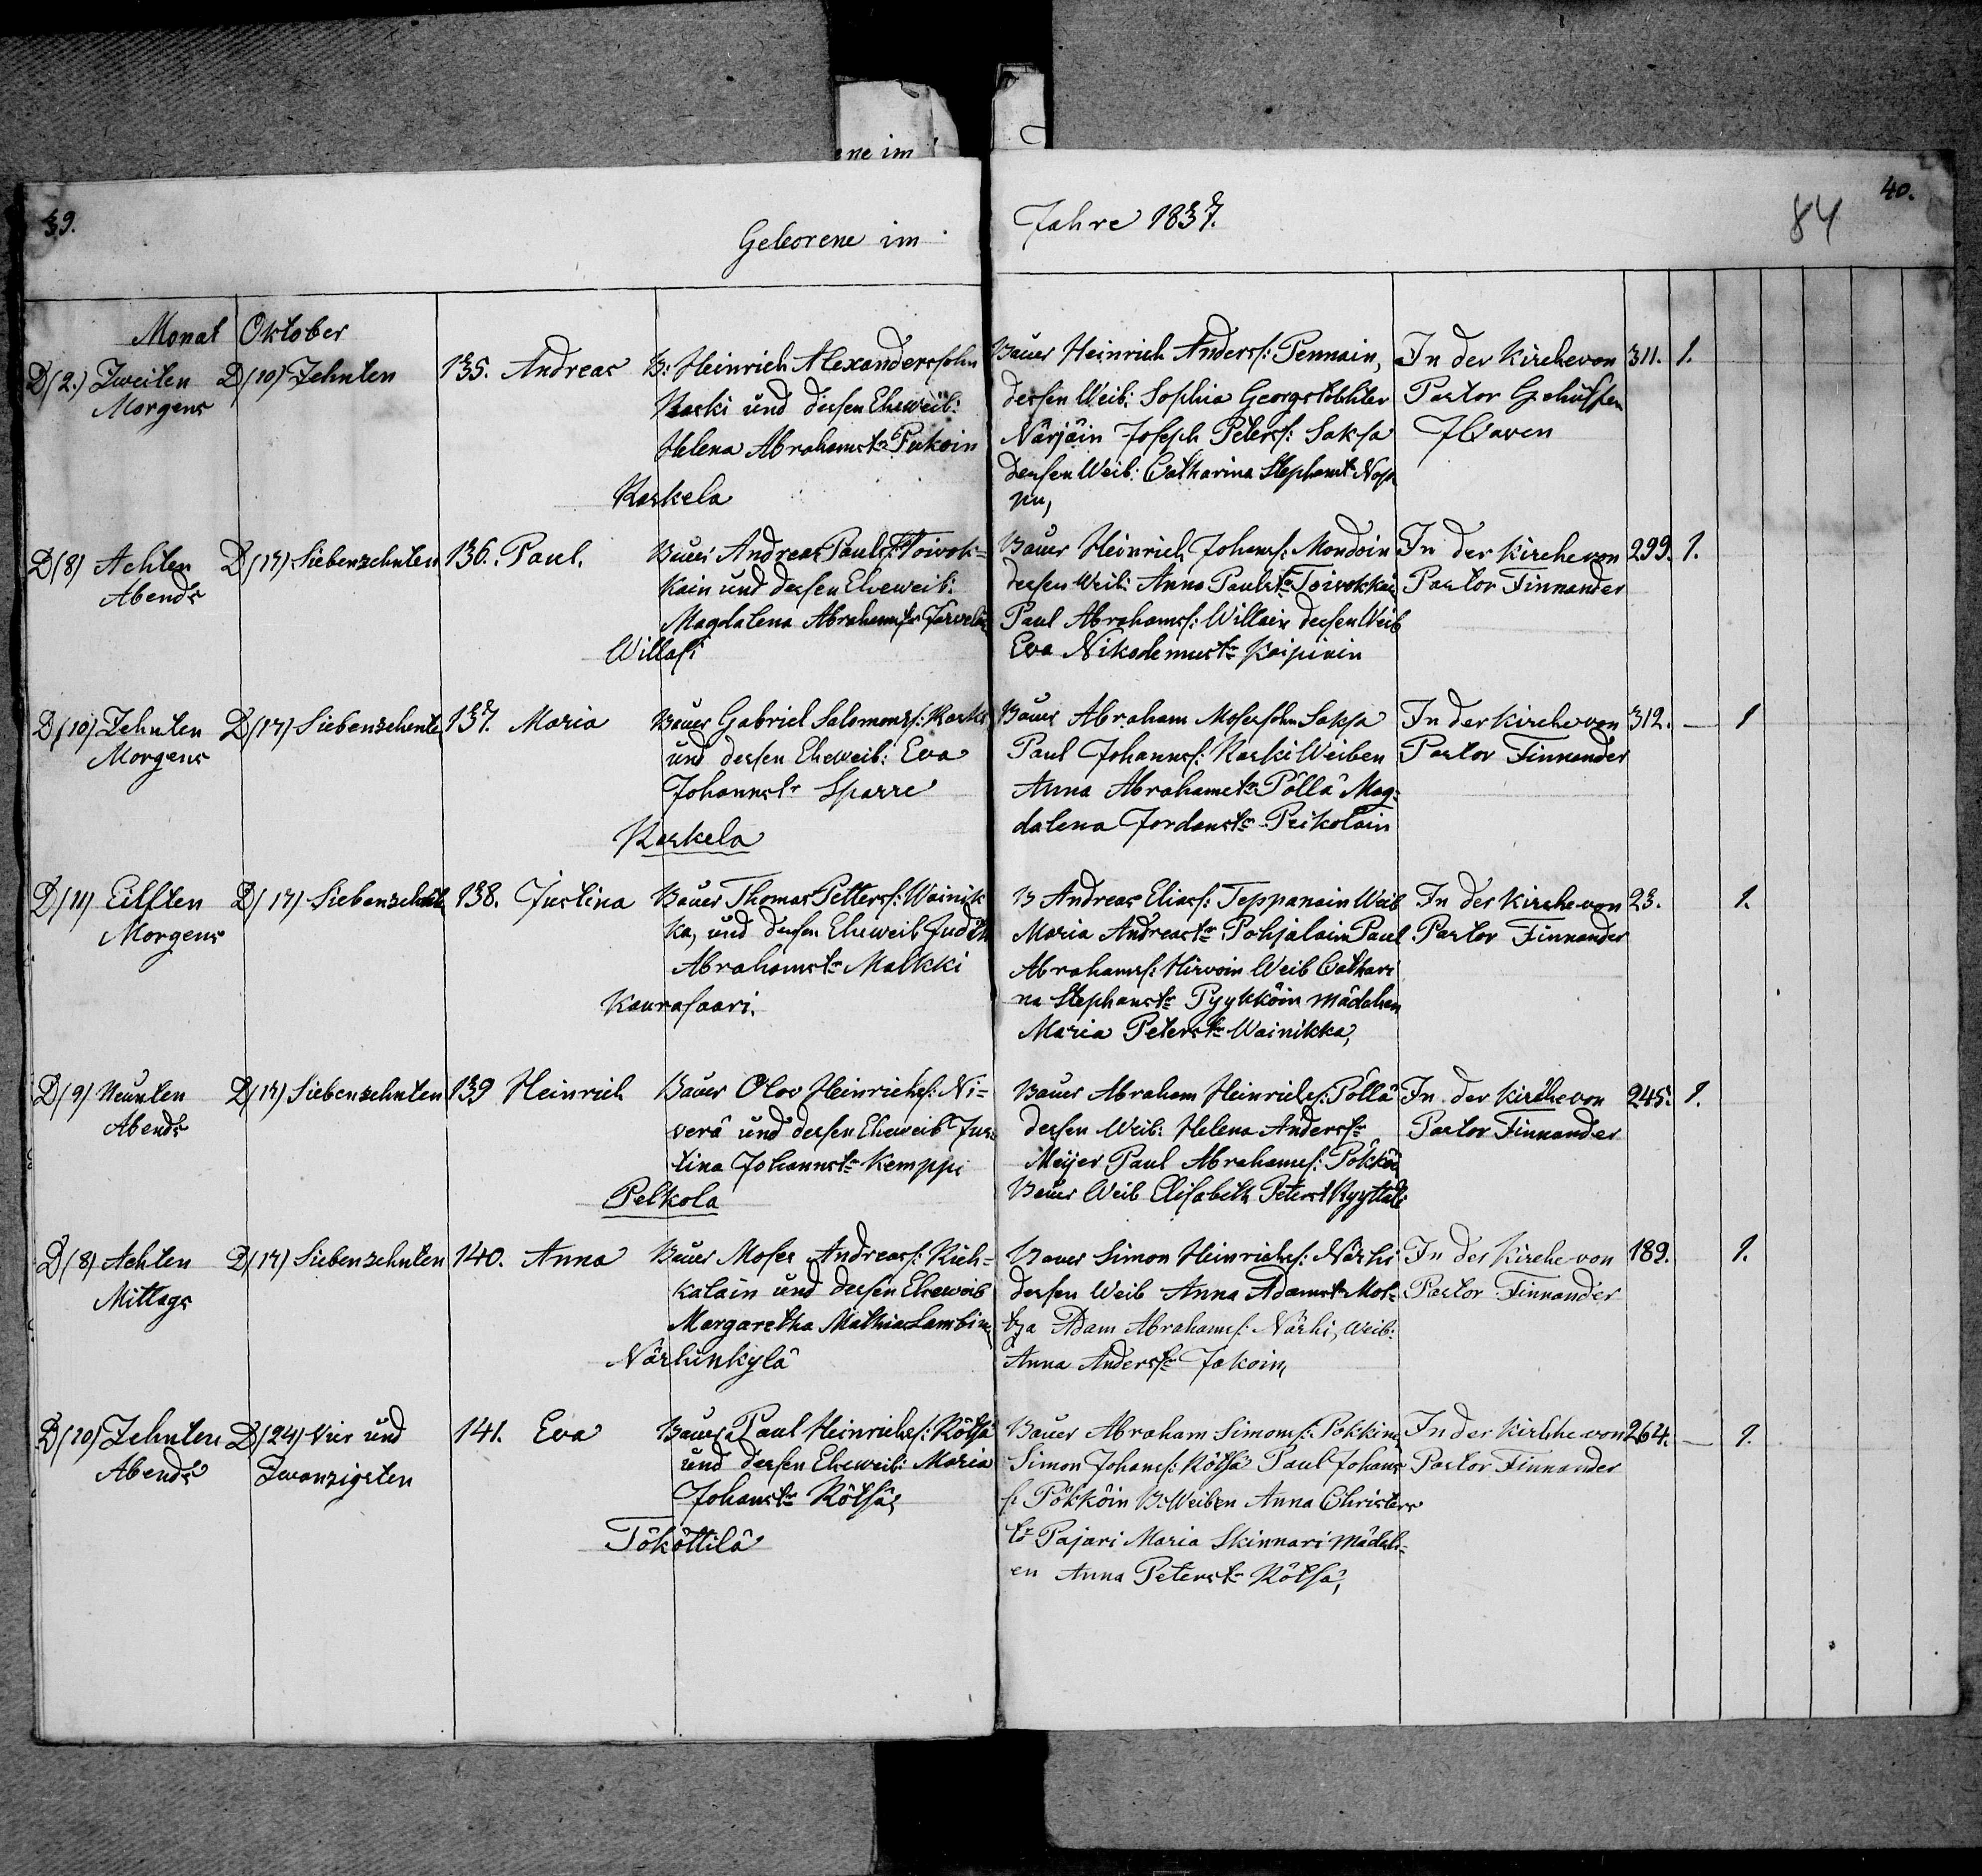 ene im
39.
40.
84
Geborene im
Jahre 1837.
Monat Oktober
D(2.) Zweiten
Morgens
D(10) Zehnten
135. Andreas
B: Heinrich Alexanderssohn
Raski und dessen Eheweib:
Helena Abrahamstr Pukoin
Raskela
Bauer Heinrich Anderss: Pennain,
dessen Weib: Sophia Georgstochter
Närjäin Joseph Peterss: Saksa
dessen Weib: Catharina Stephanst
nu,
In der Kirche von
Pastor Gehülfen
311. 1.
D(8) Achten
Abends
D(17) Siebenzehnten
136. Paul.
Bauer Andreas Pauls: Toivok-
kain und dessen Eheweib:
Magdalena Abrahamstr
Willasi
Bauer Heinrich Johanss: Mondoin
dessen Weib: Anna Paulstr Toivokkain
Paul Abrahamss: Willain dessen Weib
Eva Nikodemustr Kaipiain
In der Kirche von
Pastor Finnander
299. 1.
D(10) Zehnten
Morgens
D(17) Siebenzehnte
137. Maria
Bauer Gabriel Salomonss: Raski
und dessen Eheweib: Eva
Johannstr Sparre
Raskela
Bauer Abraham Mosessohn Saksa
Paul Johannss: Raski Weiben
Anna Abrahamstr Pöllä Mag-
dalena Jordanstr Peikolain
In der Kirche von
Pastor Finnander
312. — 1
D(11) Eilften
Morgens
D(17) Siebenzehnt
138. Justina
Bauer Thomas Petterss: Wainik
ka, und dessen Eheweib Judith
Abrahamstr Malkki
Kaurasaari.
B Andreas Eliass: Teppanain Weib
Maria Andreastr Pohjalain Paul
Abrahamss: Hirvoin Weib Cathari
na Stephanstr Pyykköin Mädchen
Maria Peterstr Wainikka,
In der Kirche von
Pastor Finnander
23. 1.
D(9) Neunten
Abends
D(17) Siebenzehnten
139 Heinrich
Bauer Olov Heinrichs: Ni-
verä und dessen Eheweib Jus-
tina Johannstr Kemppi
Pelkola
Bauer Abraham Heinrichs: Pöllä
dessen Weib: Helena Anderstr
Meijer Paul Abrahams: Pökköi
Bauer Weib Elisabeth Peterst
In der Kirche von
Pastor Finnander
245. 1.
D(8) Achten
Mittags
D(17) Siebenzehnten
140. Anna
Bauer Moses Andreass: Rich-
kalain und dessen Eheweib
Margaretha Mathias Lambin
Närhinkylä
Bauer Simon Heinrichs: Närhi
dessen Weib Anna Adamstr Mol-
tza Adam Abrahams: Närhi, Weib:
Anna Anderstr Jakoin,
In der Kirche von
Pastor Finnander
189. 1.
D(10) Zehnten
Abends
D(24) Vier und
Zwanzigsten
141. Eva
Bauer Paul Heinrichs: Rötsä
und dessen Eheweib: Maria
Johanstr Rötsä,
Tököttilä
Bauer Abraham Simons: Pokkin,
Simon Johanss: Rötsä Paul Johans
s: Pökköin B: Weiben Anna Christers
tr Pajari Maria Skinnari Mädch-
en Anna Peterstr Rötsä,
In der Kirche von
Pastor Finnander
264. — 1.